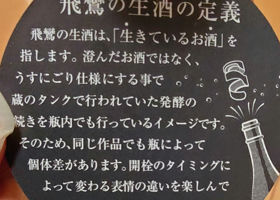 飛鸞の生酒の定義
飛鸞の生酒は、「生きているお酒」を
指します。澄んだお酒ではなく、
うすにごり仕様にする事で
蔵のタンクで行われていた発酵の
続きを瓶内でも行っているイメージです。
そのため、同じ作品でも瓶によって
個体差があります。開栓のタイミングに
よって変わる表情の違いを楽しんで